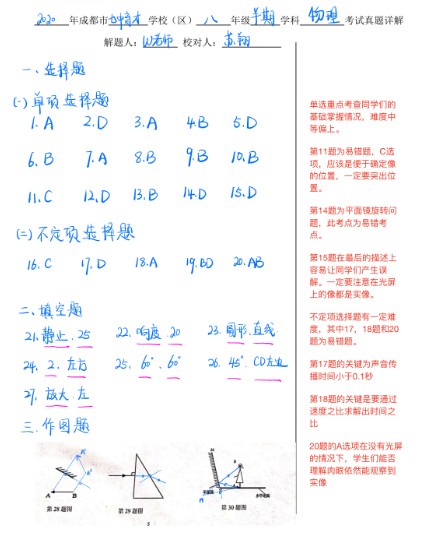 2020 年成都市七中育才学校（区） 八 年级 半期 学科 物理 考试真题详解
解题人： 老师 校对人： 苏翔
一、选择题
(一)单项选择题
1. A 2. D 3. A 4. B 5. D
6. B 7. A 8. B 9. B 10. B
11. C 12. D 13. B 14. D 15. D
(二)不定项选择题
16. C 17. D 18. A 19. BD 20. AB
二、填空题
21. 静止、25 22. 响度、20 23. 圆形、直线
24. 2、左方 25. 60°、60° 26. 45°、CD左边
27. 放大、左
三、作图题
A B
第28题图
第29题图
M
第30题图
5
单选重点考查同学们的
基础掌握情况，难度中
等偏上。
第11题为易错题，C选
项，应该是便于确定像
的位置，一定要突出位
置。
第14题为平面镜旋转问
题，此考点为易错考
点。
第15题在最后的描述上
容易让同学们产生误
解。一定要注意在光屏
上的像都是实像。
不定项选择题有一定难
度，其中17，18题和20
题为易错题。
第17题的关键为声音传
播时间小于0.1秒
第18题的关键是要通过
速度之比求解出时间之
比
20题的A选项在没有光屏
的情况下，学生们能否
理解肉眼依然能观察到
实像